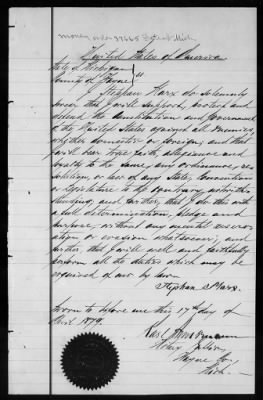 money order 37665 Detroit Mich
United States of America
State of Michigan
County of Wayne } ss
I Stephen Marx do solemnly
swear that I will support, protect and
defend the Constitution and Government
of the United States against all enemies,
whether domestic or foreign, and that
I will bear true faith, allegiance and
loyalty to the same, any ordinance, re-
solution, or law of any State, Convention
or Legislature to the contrary notwith-
standing; and further, that I do this with
a full determination, pledge and
purpose, without any mental reserv-
ation or evasion whatsoever; and
further that I will well and faithfully
perform all the duties which may be
required of me by law
Stephan Marx.
Sworn to before me this 17th day of
April 1879.
Karl
Notary Public,
Wayne Co.
Mich.